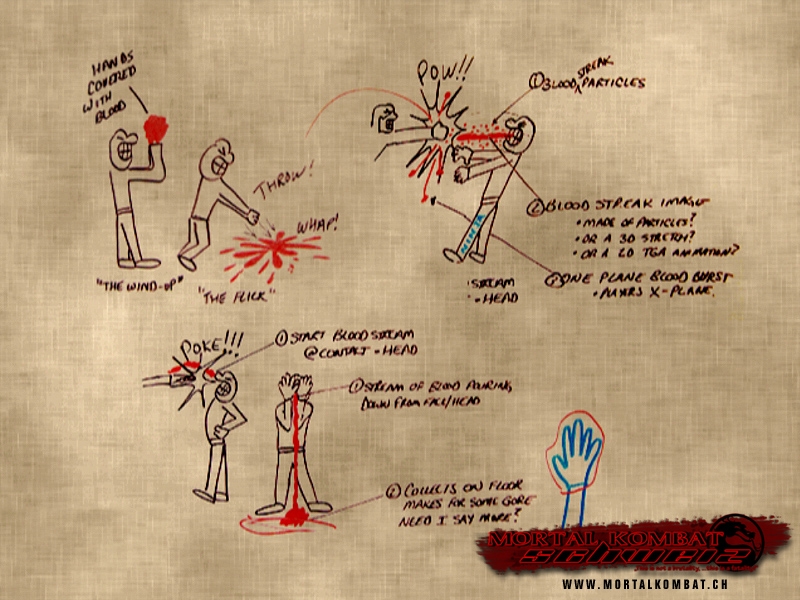 HANDS
COVERED
WITH
BLOOD
"THE WIND-UP"
"THE FLICK"
THROW!
WHAP!
POW!!
① BLOOD STREAK PARTICLES
② BLOOD STREAK IMAGE
• MADE OF PARTICLES?
• OR A 3D STRETCH?
• OR A 2D TGA ANIMATION?
ONE PLANE BLOOD BURST
• PLAYRS X-PLANE.
NINJA
STREAM
- HEAD
POKE!!!
① START BLOOD STREAM
@ CONTACT - HEAD
① STREAM OF BLOOD POURING
DOWN FROM FACE/HEAD
② COLLECTS ON FLOOR
MAKES FOR SOME GORE
NEED I SAY MORE?
MORTAL KOMBAT
SCHWEIZ
WWW.MORTALKOMBAT.CH